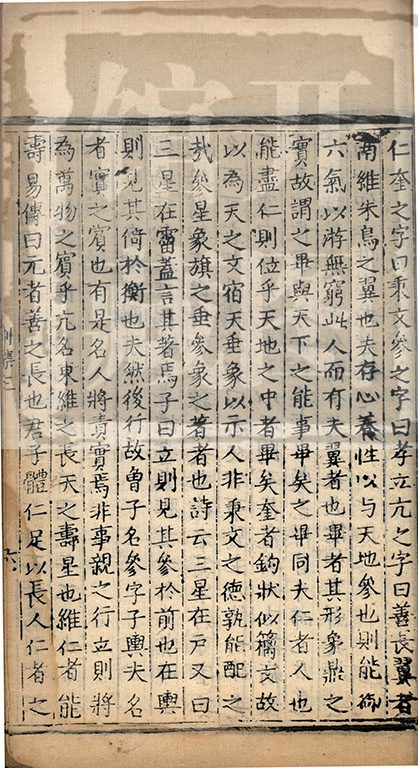 仁奎之字曰秉文參之字曰孝立亢之字曰善長翼者
南維朱鳥之翼也夫存心養性以与天地參也則能御
六氣以游無窮此人而有夫翼者也畢者其形象鼎之
實故謂之畢與天下之能事畢矣之畢同夫仁者人也
能盡仁則位乎天地之中者畢矣奎者鈎狀似籀文故
以為天之文宿天垂象以示人非秉文之德孰能配之
哉參星象旗之垂參象之著者也詩云三星在戶又曰
三星在霤蓋言其著焉子曰立則見其參於前也在輿
則見其倚於衡也夫然後行故曾子名參字子輿夫名
者實之賓也有是名人將責實焉非事親之行立則將
為萬物之賓乎亢名東維之長天之壽星也維仁者能
壽易傳曰元者善之長也君子體仁足以長人仁者之